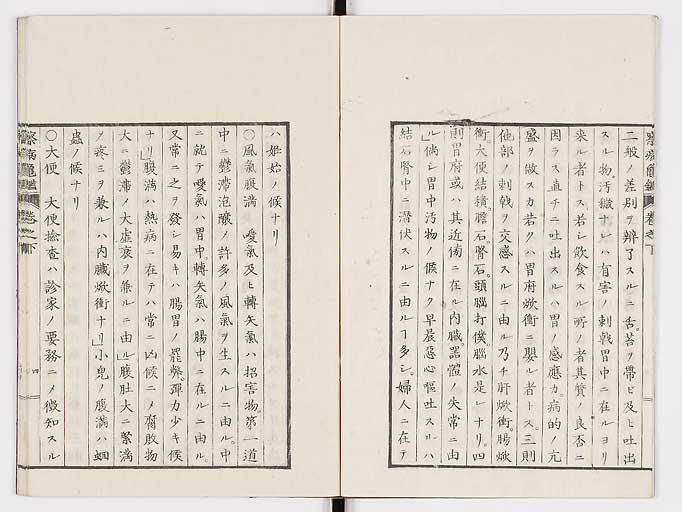 二般ノ差別ヲ辨了スルニ舌苔ヲ帶ビ及ヒ吐出
スル物汚穢ナレハ有害ノ刺戟胃中ニ在ルヨリ
來ル者トス若シ飲食スル所ノ者其質ノ良否ニ
因ラス直チニ吐出スルハ胃ノ感應力病的ノ亢
盛ヲ做スカ若クハ胃府焮衝ニ嬰ル者トス三則
他部ノ刺戟ヲ交感スルニ由ル乃チ肝焮衝腸焮
衝大便結積膽石腎石頭腦打僕腦水是レナリ四
則胃府或ハ其近傍ニ在ル内臟器體ノ失常ニ由
ル」倘シ胃中汚物ノ候ナク早晨惡心嘔吐スルハ
結石腎中ニ潜伏スルニ由ルヿ多シ婦人ニ在テ
ハ姙始ノ候ナリ
〇風氣腹滿 噯氣及ヒ轉矢氣ハ招害物第一道
中ニ鬱滯泡釀ノ許多ノ風氣ヲ生スルニ由ル中
ニ就テ噯氣ハ胃中轉矢氣ハ腸中ニ在ルニ由ル
又常ニ之ヲ發シ易キハ腸胃ノ罷弊彈力少キ候
ナリ」腹滿ハ熱病ニ在テハ常ニ凶候ニメ腐敗物
大ニ鬱滯ノ大虚衰ヲ兼ルニ由ル腹肚大ニ緊滿
ノ疼ミヲ兼ルハ内臟焮衝ナリ」小兒ノ腹滿ハ蛔
蟲ノ候ナリ
〇大便 大便撿査ハ診家ノ要務ニメ徴知スル
卷之下
四